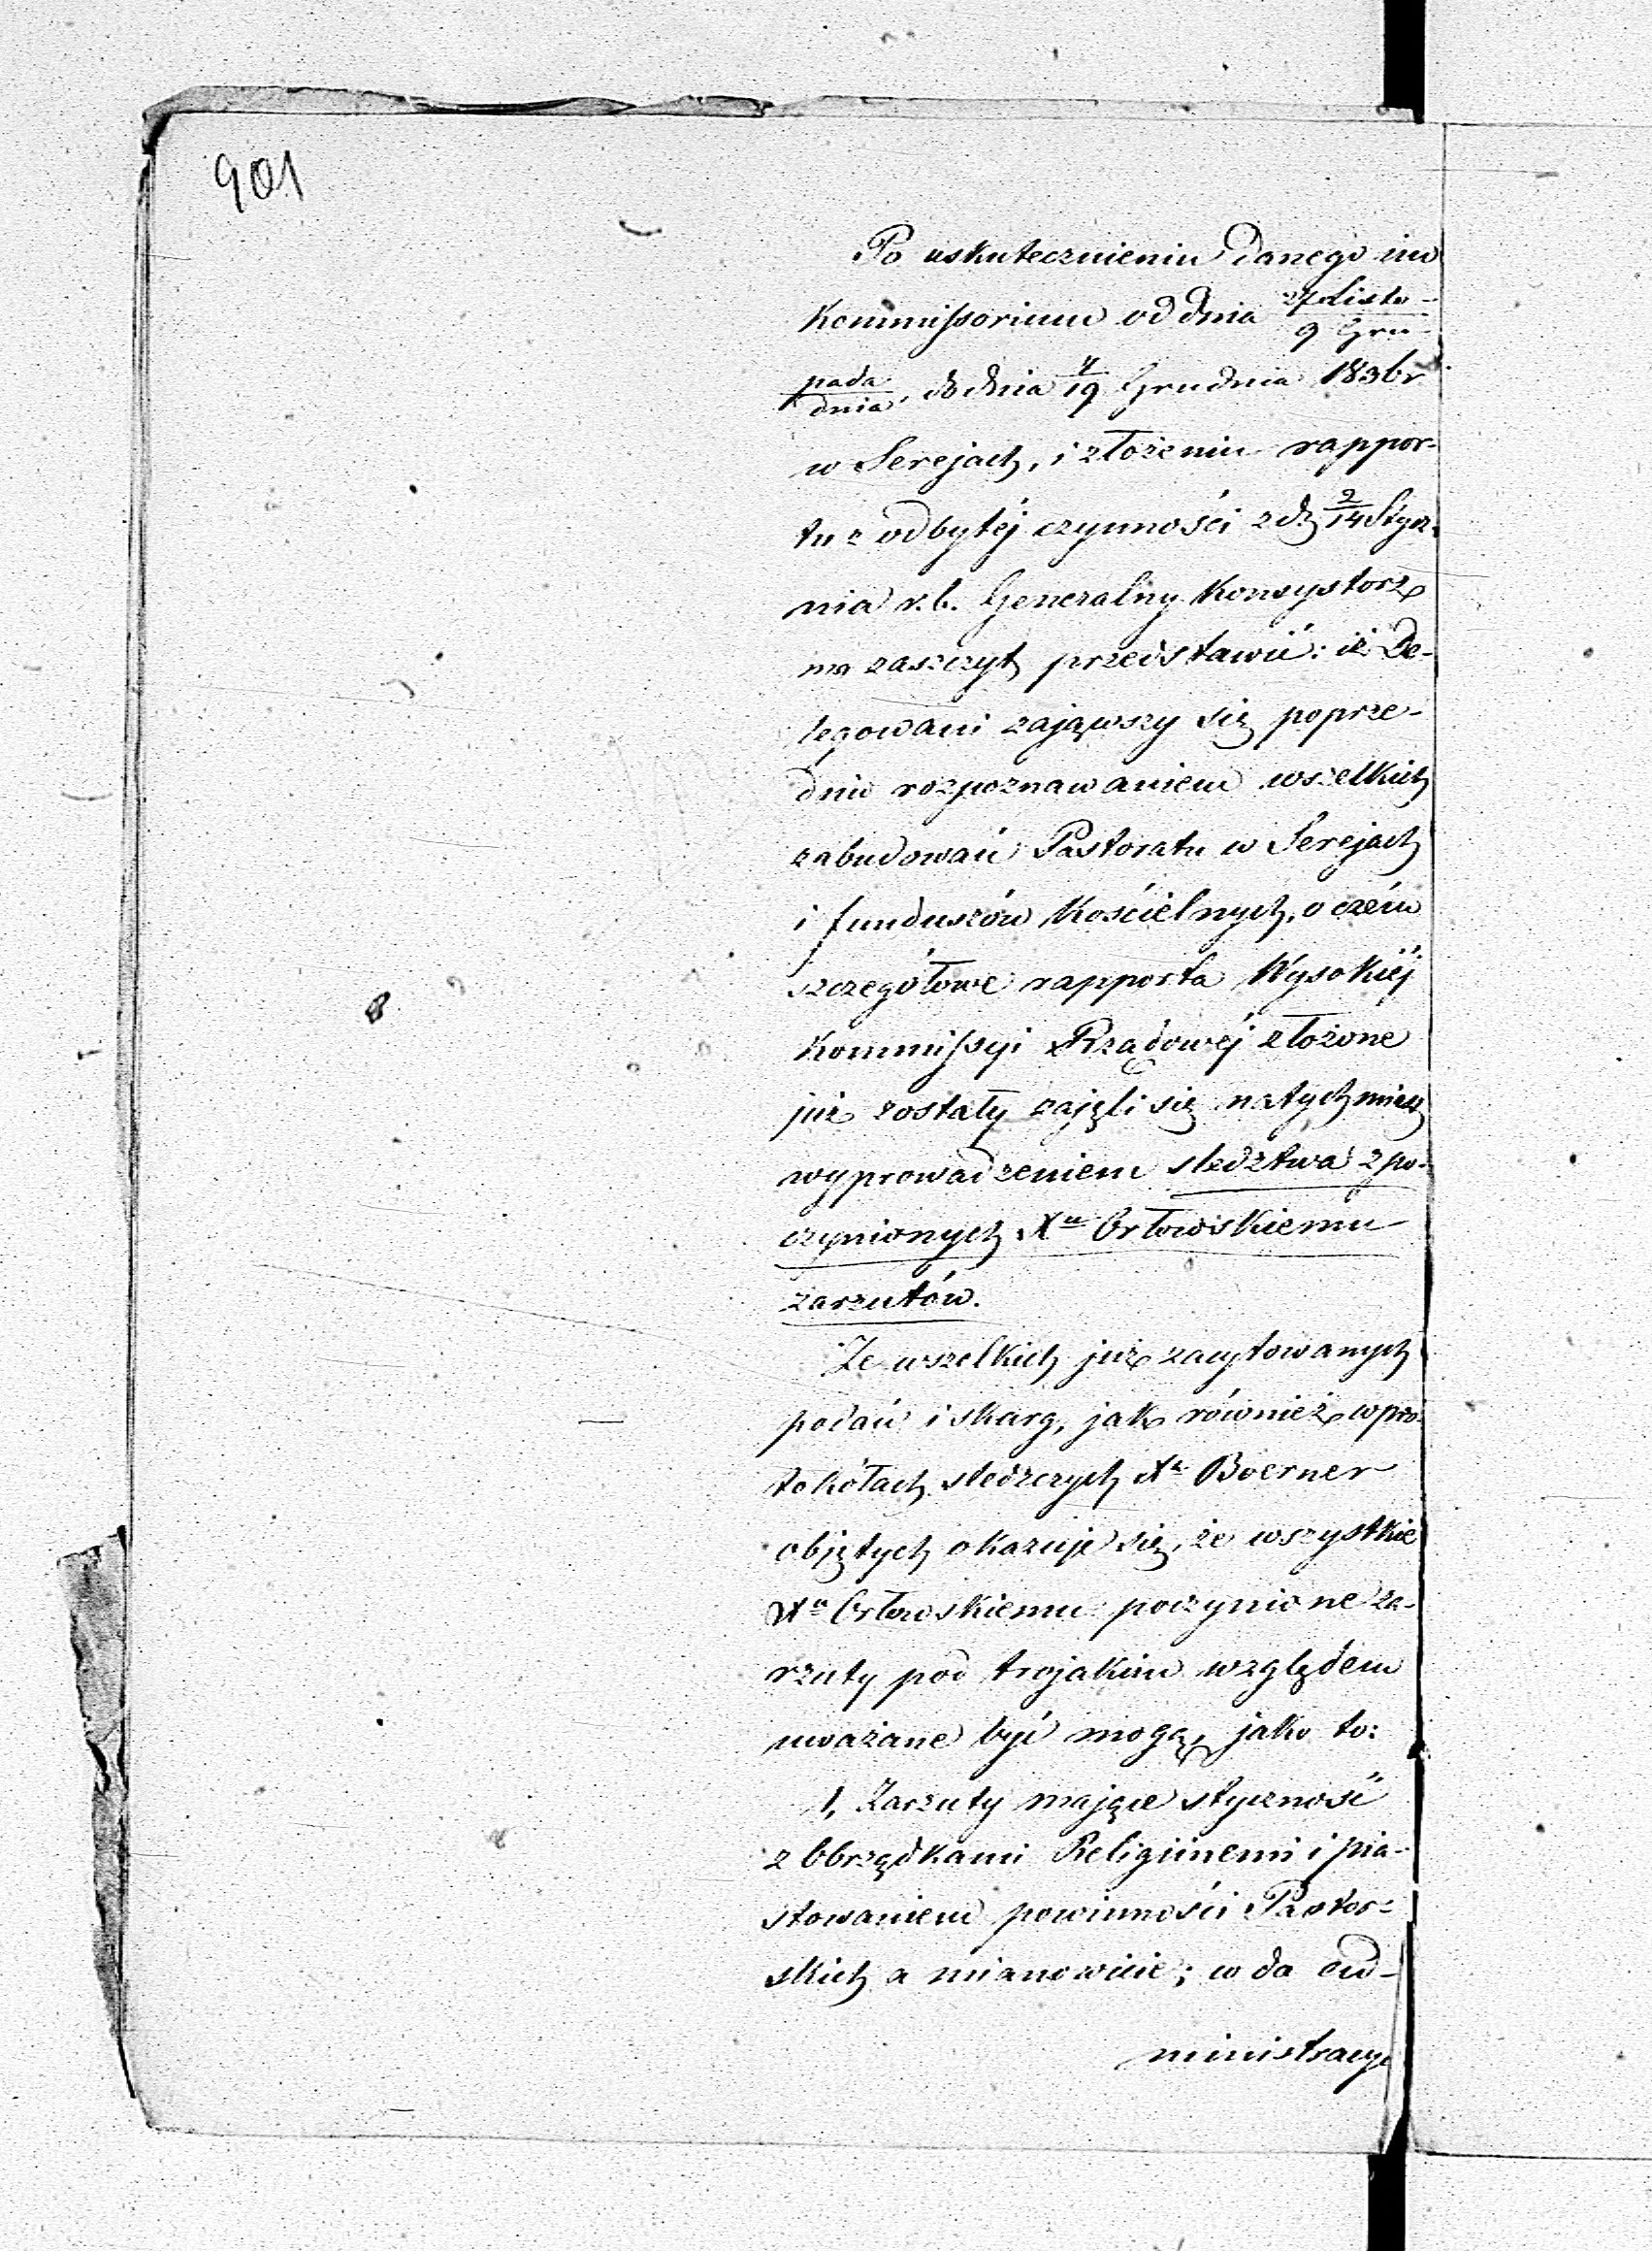 901
Po uskutecznieniu danego im
Kommissorium od dnia 27 Listo-/9 Gru-
pada/dnia, do dnia 7/19 Grudnia 1836 r
w Serejach, i złożeniu rappor-
tu z odbytéj czynności z d. 2/14 Stycz-
nia r.b. Generalny Konsystorz
ma zaszczyt przedstawić: iż De-
legowani zająwszy się poprze-
dnio rozpoznawaniem wszelkich
zabudowań Pastoratu w Serejach
i funduszów Kościelnych, o czém
szczegółowe rapporta Wysokiéj
Kommissyi Rządowéj złożone
już zostały zajęli się natychmiast
wyprowadzeniem sledztwa z po-
czynionych Xu Orłowskiemu
zarzutów.
Ze wszelkich już zacytowanych
podań i skarg, jak również w pro-
tokółach sledzczych Xa Boerner
objętych okazuje się, że wszystkie
Xu Orłowskiemu poczynione za-
rzuty pod trojakim względem
uważane być mogą, jako to:
1, Zarzuty mające styczność
z Obrządkami Religiinemi i pia-
stowaniem powinności Pastor-
skich a mianowicie; w
ministracyi